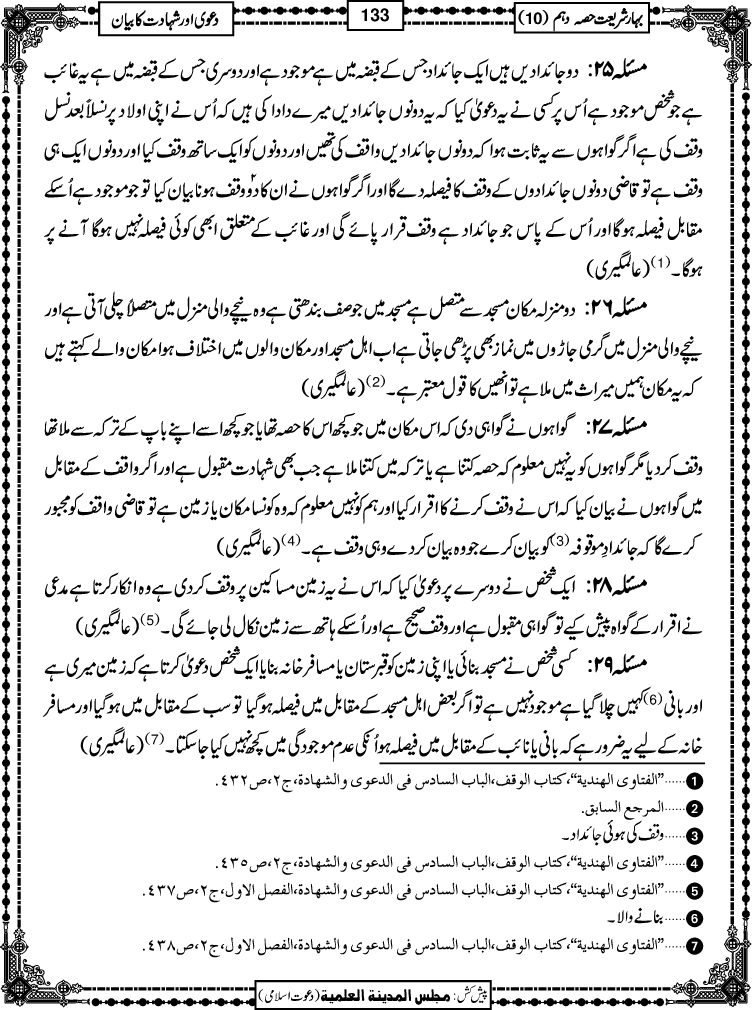 بہار شریعت حصہ دہم (10)
133
دعویٰ اور شہادت کا بیان
مسئلہ ۲۵: دو جائدادیں ہیں ایک جائداد جس کے قبضہ میں ہے موجود ہے اور دوسری جس کے قبضہ میں ہے یہ غائب
ہے جو شخص موجود ہے اُس پر کسی نے یہ دعویٰ کیا کہ یہ دونوں جائدادیں میرے دادا کی ہیں کہ اُس نے اپنی اولاد پر نسلاً بعد نسل
وقف کی ہے اگر گواہوں سے یہ ثابت ہوا کہ دونوں جائدادیں واقف کی تھیں اور دونوں کو ایک ساتھ وقف کیا اور دونوں ایک ہی
وقف ہے تو قاضی دونوں جائدادوں کے وقف کا فیصلہ دے گا اور اگر گواہوں نے ان کا دو۲ وقف ہونا بیان کیا تو جو موجود ہے اُسکے
مقابل فیصلہ ہوگا اور اُس کے پاس جو جائداد ہے وقف قرار پائے گی اور غائب کے متعلق ابھی کوئی فیصلہ نہیں ہوگا آنے پر
ہوگا۔(1) (عالمگیری)
مسئلہ ۲۶: دو منزلہ مکان مسجد سے متصل ہے مسجد میں جو صف بندھتی ہے وہ نیچے والی منزل میں متصلاً چلی آتی ہے اور
نیچے والی منزل میں گرمی جاڑوں میں نماز بھی پڑھی جاتی ہے اب اہل مسجد اور مکان والوں میں اختلاف ہوا مکان والے کہتے ہیں
کہ یہ مکان ہمیں میراث میں ملا ہے تو انھیں کا قول معتبر ہے۔(2) (عالمگیری)
مسئلہ ۲۷: گواہوں نے گواہی دی کہ اس مکان میں جو کچھ اس کا حصہ تھا یا جو کچھ اسے اپنے باپ کے ترکہ سے ملا تھا
وقف کر دیا مگر گواہوں کو یہ نہیں معلوم کہ حصہ کتنا ہے یا ترکہ میں کتنا ملا ہے جب بھی شہادت مقبول ہے اور اگر واقف کے مقابل
میں گواہوں نے بیان کیا کہ اس نے وقف کرنے کا اقرار کیا اور ہم کو نہیں معلوم کہ وہ کونسا مکان یا زمین ہے تو قاضی واقف کو مجبور
کرے گا کہ جائدادِ موقوفہ(3) کو بیان کرے جو وہ بیان کر دے وہی وقف ہے۔(4) (عالمگیری)
مسئلہ ۲۸: ایک شخص نے دوسرے پر دعویٰ کیا کہ اس نے یہ زمین مساکین پر وقف کر دی ہے وہ انکار کرتا ہے مدعی
نے اقرار کے گواہ پیش کیے تو گواہی مقبول ہے اور وقف صحیح ہے اور اُسکے ہاتھ سے زمین نکال لی جائے گی۔(5) (عالمگیری)
مسئلہ ۲۹: کسی شخص نے مسجد بنائی یا اپنی زمین کو قبرستان یا مسافر خانہ بنایا ایک شخص دعویٰ کرتا ہے کہ زمین میری ہے
اور بانی(6) کہیں چلا گیا ہے موجود نہیں ہے تو اگر بعض اہل مسجد کے مقابل میں فیصلہ ہوگیا تو سب کے مقابل میں ہوگیا اور مسافر
خانہ کے لیے یہ ضرور ہے کہ بانی یا نائب کے مقابل میں فیصلہ ہو اُنکی عدم موجودگی میں کچھ نہیں کیا جا سکتا۔(7) (عالمگیری)
1......"الفتاوی الهندیة"، کتاب الوقف، الباب السادس فی الدعوی والشهادة، ج۲، ص۴۳۲.
2......المرجع السابق.
3......وقف کی ہوئی جائداد۔
4......"الفتاوی الهندیة"، کتاب الوقف، الباب السادس فی الدعوی والشهادة، ج۲، ص۴۳۵.
5......"الفتاوی الهندیة"، کتاب الوقف، الباب السادس فی الدعوی والشهادة، الفصل الاول، ج۲، ص۴۳۷.
6......بنانے والا۔
7......"الفتاوی الهندیة"، کتاب الوقف، الباب السادس فی الدعوی والشهادة، الفصل الاول، ج۲، ص۴۳۸.
پیش کش: مجلس المدینة العلمیة (دعوت اسلامی)